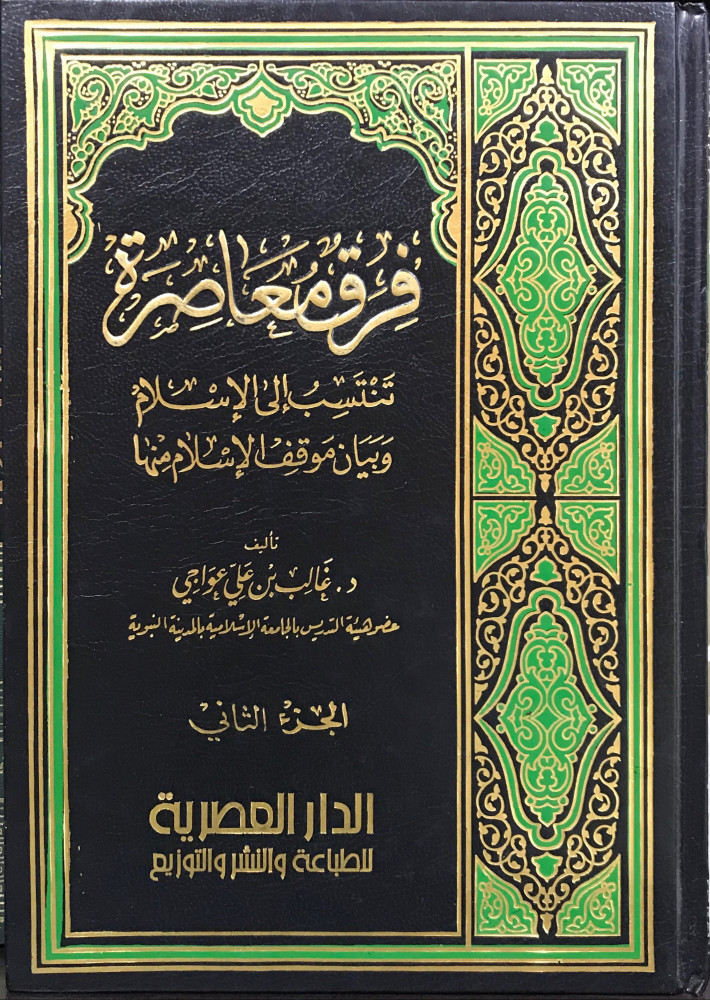 فِرَقٌ مُعَاصِرَة
تَنْتَسِبُ إلى الإسْلام
وَبَيَان مَوقِف الإسْلام مِنهَا
تأليف
د. غَالِب بن عَلي عَواجي
عضو هيئة التدريس بالجامعة الإسلامية بالمدينة النبوية
الجزء الثاني
الدار العصرية
للطباعة والنشر والتوزيع